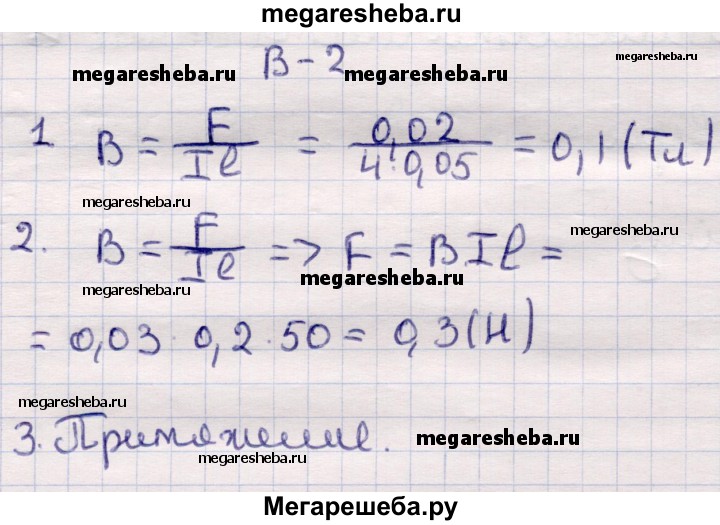 megaresheba.ru
В-2
megaresheba.ru megaresheba.ru megaresheba.ru
1 B = F/Iℓ = 0,02/4·0,05 = 0,1 (Тл)
megaresheba.ru
2. B = F/Iℓ => F = BIℓ =
megaresheba.ru
megaresheba.ru
megaresheba.ru
= 0,03 · 0,2 · 50 = 0,3 (Н)
megaresheba.ru
3. Притяжение.
megaresheba.ru
megaresheba.ru
Мегарешеба.ру